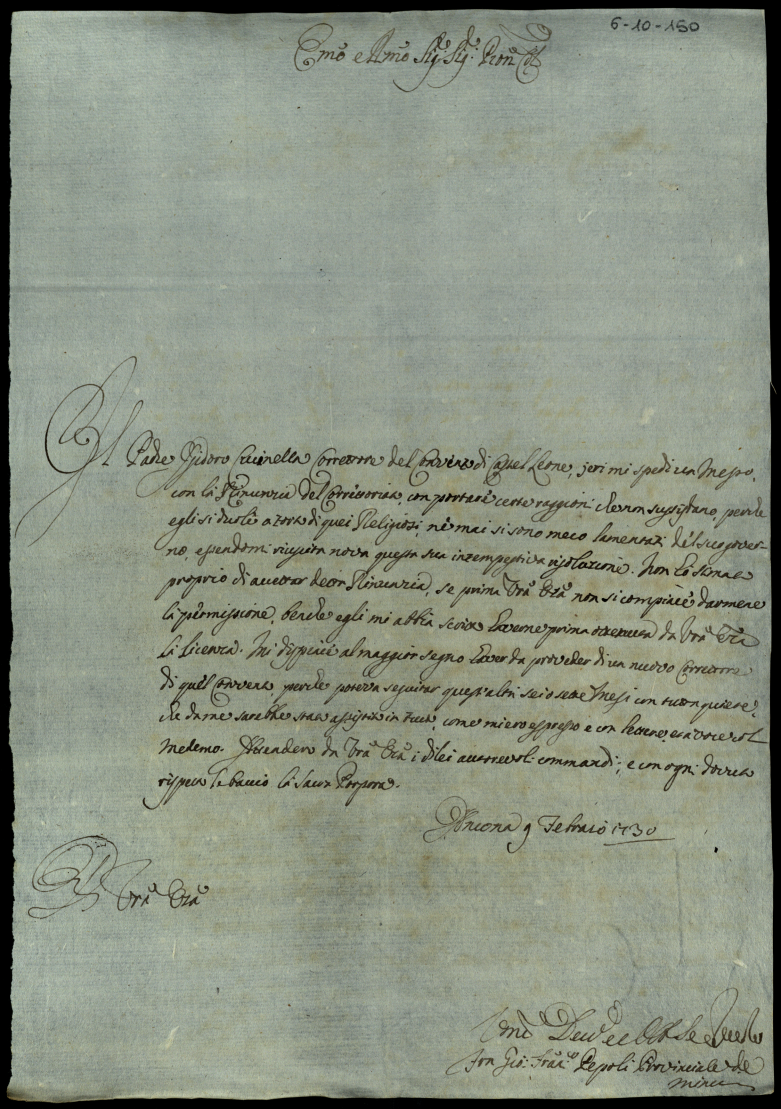 6-10-150
Emo e Rmo Sig.r Sig.r Pron Col
Il Padre Isidoro Correttore del Convento di Castel Leone, jeri mi spedì un Messo,
con la Rinunzia del Correttoriato, con portare certe raggioni che non sussistano, perche
egli si duole a torto di quei Religiosi, ne mai si sono meco lamentati del suo gover-
no, essendomi riuscita nova questa sua intempestiva risoluzione. Non hò stimato
proprio di accettar detta Rinunzia, se prima Vra Eza non si compiace darmene
la permissione, benche egli mi abbia scritto haverne prima ottenuta da Vra Eza
la licenza. Mi dispiace al maggior segno haver da proveder di un nuovo Correttore
di quel Convento, perche poteva seguitar quest'altri sei o sette Mesi con tutta quiete,
che da me sarebbe stato assistito in tutto, come mi ero espresso e con lettere, et a voce col
medemo. Attenderò da Vra Eza i di lei autorevoli commandi; e con ogni dovuto
rispetto le baccio la Sacra Porpora.
Ancona 9 Febraio 1730
D Vra Eza
Umo Devo et Obbo Servo
Fra Gio: Franco Pepoli Provinciale de
Minimi